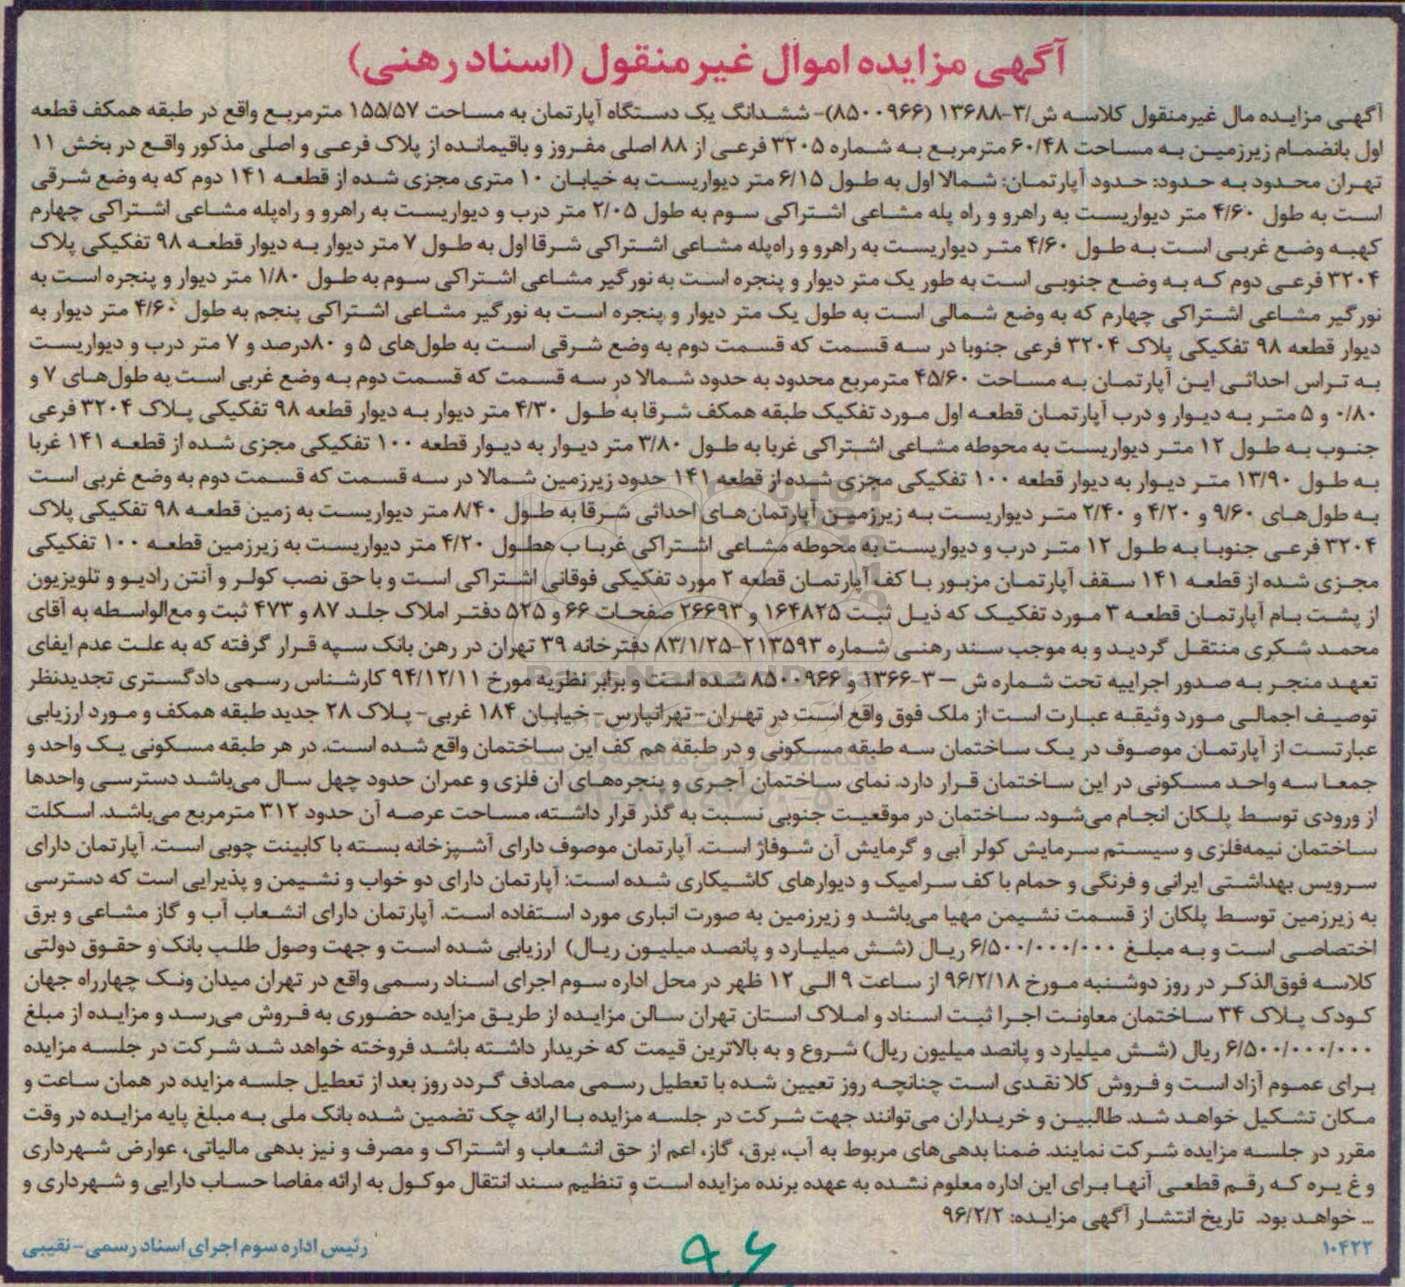 آگهی مزایده اموال غیرمنقول (اسناد رهنی)
آگهی مزایده مال غیرمنقول کلاسه ش/۳-۱۳۶۸۸ (۸۵۰۰۹۶۶)- ششدانگ یک دستگاه آپارتمان به مساحت ۱۵۵/۵۷ مترمربع واقع در طبقه همکف قطعه
اول بانضمام زیرزمین به مساحت ۶۰/۴۸ مترمربع به شماره ۳۲۰۵ فرعی از ۸۸ اصلی مفروز و باقیمانده از پلاک فرعی و اصلی مذکور واقع در بخش ۱۱
تهران محدود به حدود: حدود آپارتمان: شمالا اول به طول ۶/۱۵ متر دیواریست به خیابان ۱۰ متری مجزی شده از قطعه ۱۴۱ دوم که به وضع شرقی
است به طول ۴/۶۰ متر دیواریست به راهرو و راه پله مشاعی اشتراکی سوم به طول ۲/۰۵ متر درب و دیواریست به راهرو و راه‌پله مشاعی اشتراکی چهارم
کهبه وضع غربی است به طول ۴/۶۰ متر دیواریست به راهرو و راه‌پله مشاعی اشتراکی شرقا اول به طول ۷ متر دیوار به دیوار قطعه ۹۸ تفکیکی پلاک
۳۲۰۴ فرعی دوم که به وضع جنوبی است به طور یک متر دیوار و پنجره است به نورگیر مشاعی اشتراکی سوم به طول ۱/۸۰ متر دیوار و پنجره است به
نورگیر مشاعی اشتراکی چهارم که به وضع شمالی است به طول یک متر دیوار و پنجره است به نورگیر مشاعی اشتراکی پنجم به طول ۴/۶۰ متر دیوار به
دیوار قطعه ۹۸ تفکیکی پلاک ۳۲۰۴ فرعی جنوبا در سه قسمت که قسمت دوم به وضع شرقی است به طول‌های ۵ و ۸۰درصد و ۷ متر درب و دیواریست
به تراس احداثی این آپارتمان به مساحت ۴۵/۶۰ مترمربع محدود به حدود شمالا در سه قسمت که قسمت دوم به وضع غربی است به طول‌های ۷ و
۰/۸۰ و ۵ متر به دیوار و درب آپارتمان قطعه اول مورد تفکیک طبقه همکف شرقا به طول ۴/۳۰ متر دیوار به دیوار قطعه ۹۸ تفکیکی پلاک ۳۲۰۴ فرعی
جنوب به طول ۱۲ متر دیواریست به محوطه مشاعی اشتراکی غربا به طول ۳/۸۰ متر دیوار به دیوار قطعه ۱۰۰ تفکیکی مجزی شده از قطعه ۱۴۱ غربا
به طول ۱۳/۹۰ متر دیوار به دیوار قطعه ۱۰۰ تفکیکی مجزی شده از قطعه ۱۴۱ حدود زیرزمین شمالا در سه قسمت که قسمت دوم به وضع غربی است
به طول‌های ۹/۶۰ و ۴/۲۰ و ۲/۴۰ متر دیواریست به زیرزمین آپارتمان‌های احداثی شرقا به طول ۸/۴۰ متر دیواریست به زمین قطعه ۹۸ تفکیکی پلاک
۳۲۰۴ فرعی جنوبا به طول ۱۲ متر درب و دیواریست به محوطه مشاعی اشتراکی غربا ب هطول ۴/۲۰ متر دیواریست به زیرزمین قطعه ۱۰۰ تفکیکی
مجزی شده از قطعه ۱۴۱ سقف آپارتمان مزبور با کف آپارتمان قطعه ۲ مورد تفکیکی فوقانی اشتراکی است و با حق نصب کولر و آنتن رادیو و تلویزیون
از پشت بام آپارتمان قطعه ۳ مورد تفکیک که ذیل ثبت ۱۶۴۸۲۵ و ۲۶۶۹۳ صفحات ۶۶ و ۵۲۵ دفتر املاک جلد ۸۷ و ۴۷۳ ثبت و مع‌الواسطه به آقای
محمد شکری منتقل گردید و به موجب سند رهنی شماره ۲۱۳۵۹۳-۸۳/۱/۲۵ دفترخانه ۳۹ تهران در رهن بانک سپه قرار گرفته که به علت عدم ایفای
تعهد منجر به صدور اجراییه تحت شماره ش – ۳-۱۳۶۶ و ۸۵۰۰۹۶۶ شده است و برابر نظریه مورخ ۹۴/۱۲/۱۱ کارشناس رسمی دادگستری تجدیدنظر
توصیف اجمالی مورد وثیقه عبارت است از ملک فوق واقع است در تهران- تهرانپارس- خیابان ۱۸۴ غربی- پلاک ۲۸ جدید طبقه همکف و مورد ارزیابی
عبارتست از آپارتمان موصوف در یک ساختمان سه طبقه مسکونی و در طبقه هم کف این ساختمان واقع شده است. در هر طبقه مسکونی یک واحد و
جمعا سه واحد مسکونی در این ساختمان قرار دارد. نمای ساختمان آجری و پنجره‌های ان فلزی و عمران حدود چهل سال می‌باشد دسترسی واحدها
از ورودی توسط پلکان انجام می‌شود. ساختمان در موقعیت جنوبی نسبت به گذر قرار داشته، مساحت عرصه آن حدود ۳۱۲ مترمربع می‌باشد. اسکلت
ساختمان نیمه‌فلزی و سیستم سرمایش کولر آبی و گرمایش آن شوفاژ است. آپارتمان موصوف دارای آشپزخانه بسته با کابینت چوبی است. آپارتمان دارای
سرویس بهداشتی ایرانی و فرنگی و حمام با کف سرامیک و دیوارهای کاشیکاری شده است: آپارتمان دارای دو خواب و نشیمن و پذیرایی است که دسترسی
به زیرزمین توسط پلکان از قسمت نشیمن مهیا می‌باشد و زیرزمین به صورت انباری مورد استفاده است. آپارتمان دارای انشعاب آب و گاز مشاعی و برق
اختصاصی است و به مبلغ ۶/۵۰۰/۰۰۰/۰۰۰ ریال (شش میلیارد و پانصد میلیون ریال) ارزیابی شده است و جهت وصول طلب بانک و حقوق دولتی
کلاسه فوق‌الذکر در روز دوشنبه مورخ ۹۶/۲/۱۸ از ساعت ۹ الی ۱۲ ظهر در محل اداره سوم اجرای اسناد رسمی واقع در تهران میدان ونک چهارراه جهان
کودک پلاک ۳۴ ساختمان معاونت اجرا ثبت اسناد و املاک استان تهران سالن مزایده از طریق مزایده حضوری به فروش می‌رسد و مزایده از مبلغ
۶/۵۰۰/۰۰۰/۰۰۰ ریال (شش میلیارد و پانصد میلیون ریال) شروع و به بالاترین قیمت که خریدار داشته باشد فروخته خواهد شد شرکت در جلسه مزایده
برای عموم آزاد است و فروش کلا نقدی است چنانچه روز تعیین شده با تعطیل رسمی مصادف گردد روز بعد از تعطیل جلسه مزایده در همان ساعت و
مکان تشکیل خواهد شد. طالبین و خریداران می‌توانند جهت شرکت در جلسه مزایده با ارائه چک تضمین شده بانک ملی به مبلغ پایه مزایده در وقت
مقرر در جلسه مزایده شرکت نمایند. ضمنا بدهی‌های مربوط به آب، برق، گاز، اعم از حق انشعاب و اشتراک و مصرف و نیز بدهی مالیاتی، عوارض شهرداری
و غ یره که رقم قطعی آنها برای این اداره معلوم نشده به عهده برنده مزایده است و تنظیم سند انتقال موکول به ارائه مفاصا حساب دارایی و شهرداری و
... خواهد بود. تاریخ انتشار آگهی مزایده: ۹۶/۲/۲
۱۰۴۲۲ رئیس اداره سوم اجرای اسناد رسمی- نقیبی